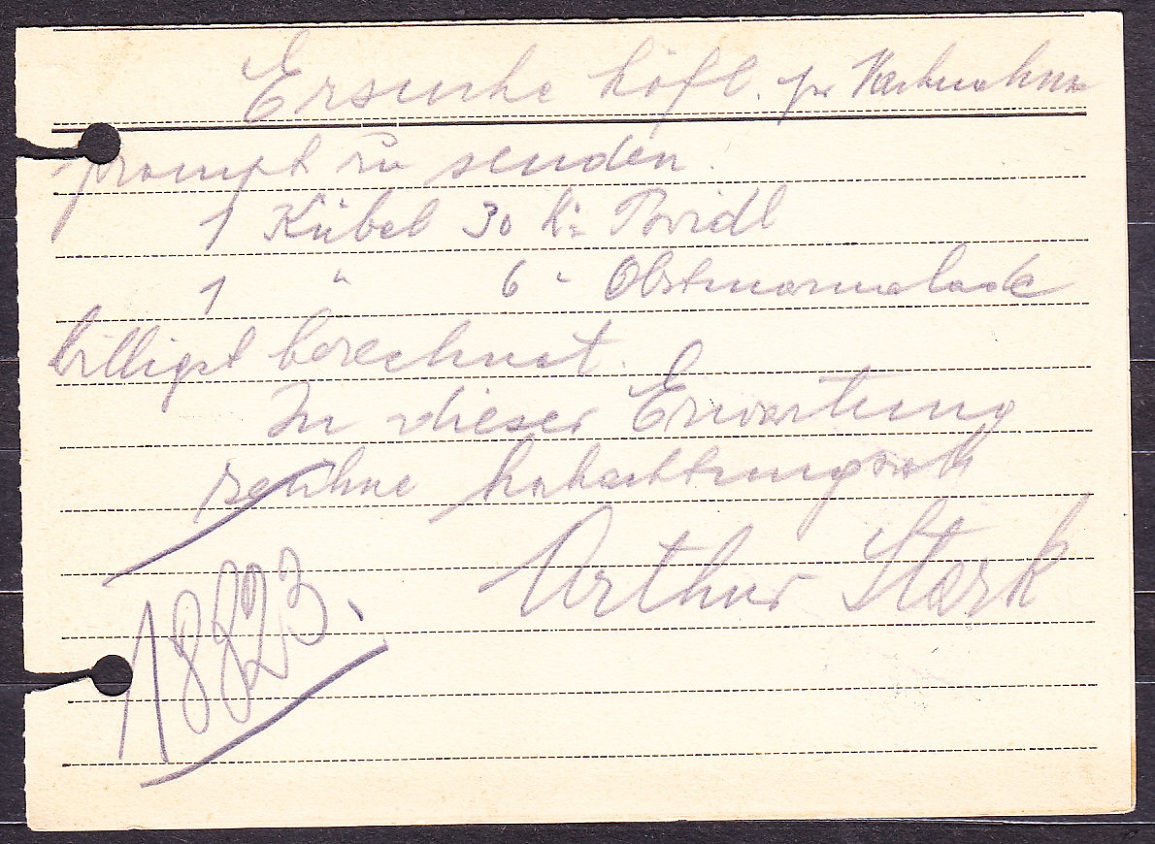 Ersuche höfl. per Nachnahme
prompt zu senden.
1 Kübel 30 K: Powidl
1 " 6 " Obstmarmelade
billigst berechnet.
In dieser Erwartung
zeichne hochachtungsvoll
Arthur Stark
18823.